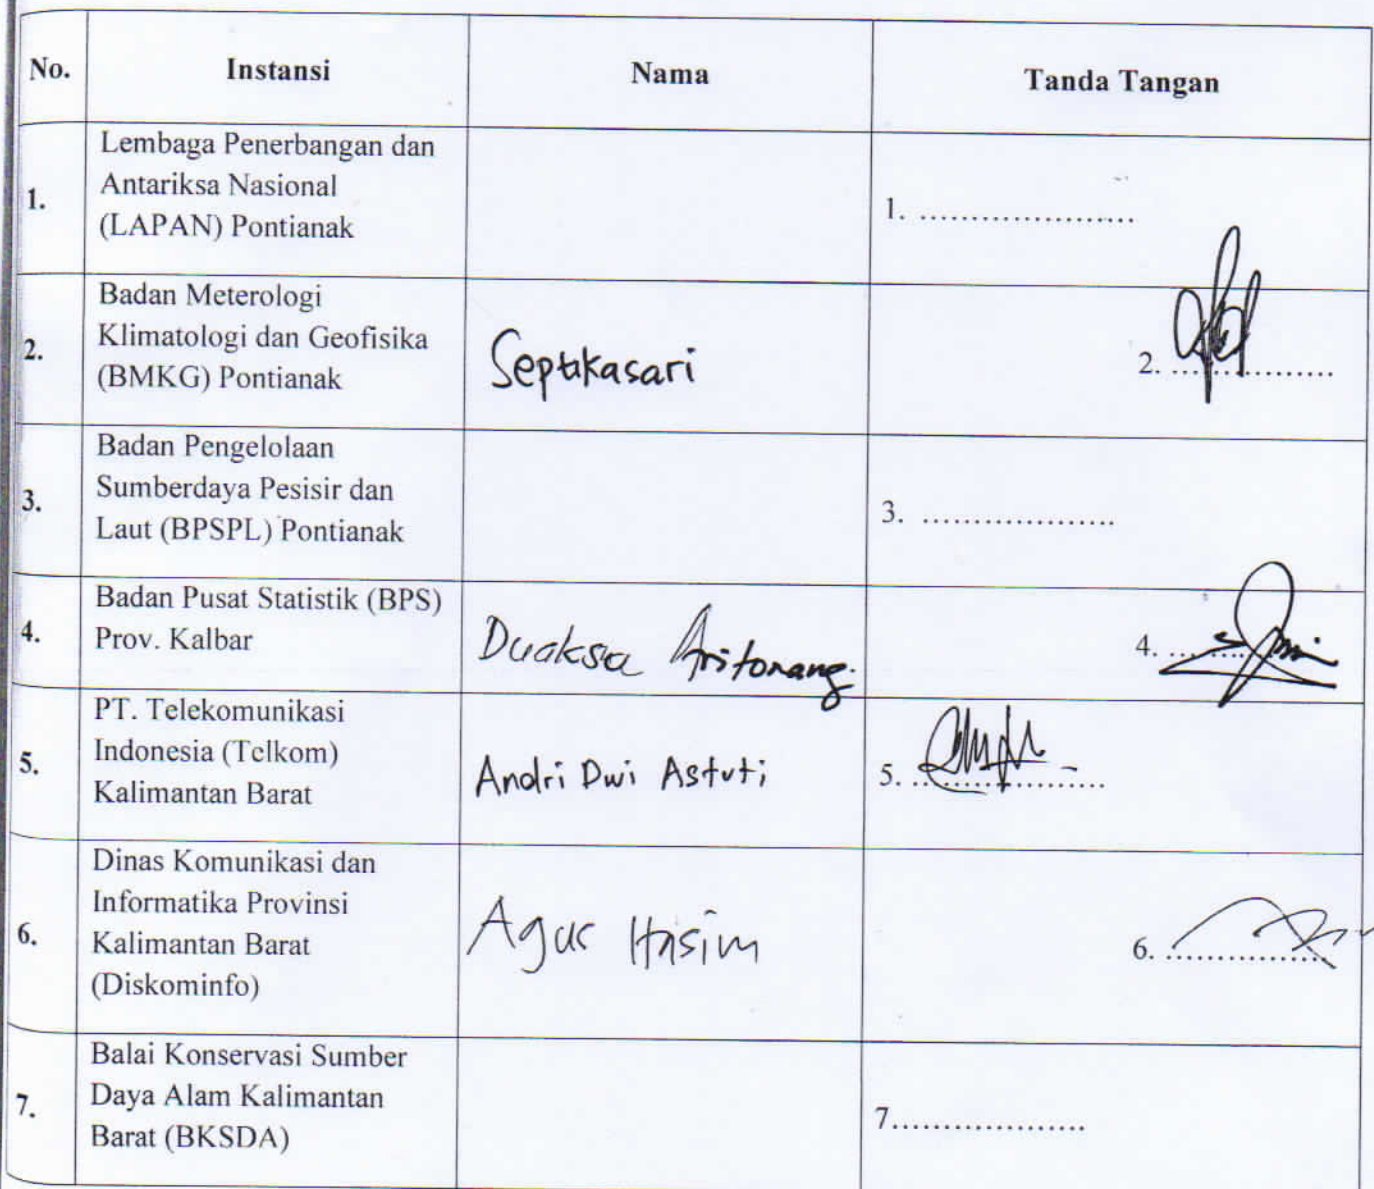 No. Instansi Nama Tanda Tangan
Lembaga Penerbangan dan
Antariksa Nasional
1. (LAPAN) Pontianak 1. ....................
Badan Meterologi
Klimatologi dan Geofisika
2. (BMKG) Pontianak Septikasari 2. ................
Badan Pengelolaan
Sumberdaya Pesisir dan
3. Laut (BPSPL) Pontianak 3. ..................
Badan Pusat Statistik (BPS)
4. Prov. Kalbar Duaksa Aritonang. 4. .........
PT. Telekomunikasi
Indonesia (Telkom)
5. Kalimantan Barat Andri Dwi Astuti 5. ...................
Dinas Komunikasi dan
Informatika Provinsi
6. Kalimantan Barat Agus Hasim 6. ................
(Diskominfo)
Balai Konservasi Sumber
Daya Alam Kalimantan
7. Barat (BKSDA) 7...................